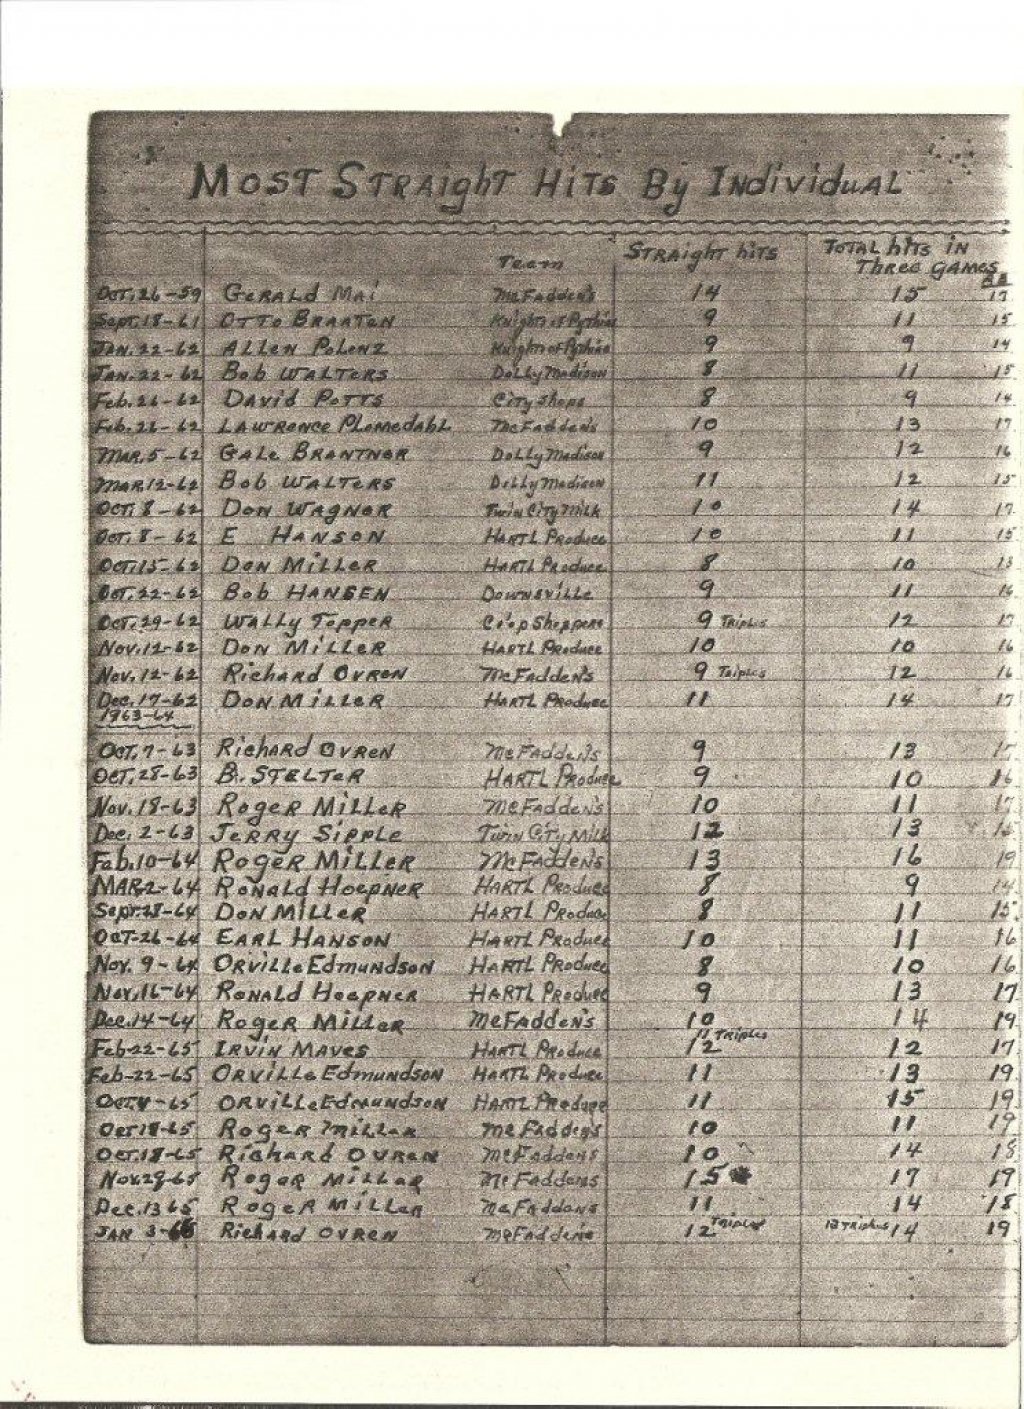 MOST STRAIGHT HITS By INDIVIDUAL
Team STRAIGHT hITS TOTAL hITS IN
THREE GAMES
OCT. 26-59 GERALD MAI McFadden's 14 15 17
Sept. 18-61 OTTO BRAATEN Knights of Pythias 9 11 15
JAN. 22-62 ALLEN POLENZ Knights of Pythias 9 9 14
JAN. 22-62 Bob WALTERS Dolly Madison 8 11 15
Feb. 26-62 DAVID POTTS City Shops 8 9 14
Feb. 26-62 LAWRENCE PLOMEDAHL McFadden's 10 13 17
MAR. 5-62 GALE BRANTNER Dolly Madison 9 12 16
MAR 12-62 Bob WALTERS Dolly Madison 11 12 15
OCT. 8-62 DON WAGNER Twin City Milk 10 14 17
OCT. 8-62 E HANSON HARTL PRODUCE 10 11 15
OCT. 15-62 DON MILLER HARTL PRODUCE 8 10 13
OCT. 22-62 Bob HANSEN DOWNSVILLE 9 11
OCT. 29-62 WALLY TOPPER Co'op Shoppers 9 TRIPLES 12 17
NOV. 12-62 DON MILLER HARTL PRODUCE 10 10 16
NOV. 12-62 RICHARD OVREN McFadden's 9 TRIPLES 12 16
DEC. 17-62 DON MILLER HARTL PRODUCE 11 14 17
1963-64
OCT. 7-63 RICHARD OVREN McFadden's 9 13 15
OCT. 28-63 B. STELTER HARTL PRODUCE 9 10 16
NOV. 18-63 ROGER MILLER McFadden's 10 11 17
DEC. 2-63 JERRY SIPPLE TWIN CITY MILK 12 13
Feb. 10-64 ROGER MILLER McFADDEN'S 13 16 19
MAR 2-64 RONALD HOEPNER HARTL PRODUCE 8 9 14
Sept. 28-64 DON MILLER HARTL PRODUCE 8 11 15
OCT-26-64 EARL HANSON HARTL PRODUCE 10 11 16
NOV. 9-64 ORVILLE EDMUNDSON HARTL PRODUCE 8 10 16
NOV. 16-64 RONALD HOEPNER HARTL PRODUCE 9 13 17
DEC. 14-64 ROGER MILLER McFADDEN'S 10 14 19
11 TRIPLES
Feb-22-65 IRVIN MAVES HARTL PRODUCE 12 12 17
Feb-22-65 ORVILLE EDMUNDSON HARTL PRODUCE 11 13 19
OCT. 4-65 ORVILLE EDMUNDSON HARTL PRODUCE 11 15 19
OCT 18-65 ROGER MILLER McFADDENS 10 11 19
OCT. 18-65 RICHARD OVREN McFADDENS 10 14 18
NOV. 29-65 ROGER MILLER McFADDENS 15 17 19
DEC. 13 65 ROGER MILLER McFADDENS 11 14 18
JAN 3-66 RICHARD OVREN McFadden's 12 TRIPLES 13 TRIPLES 14 19